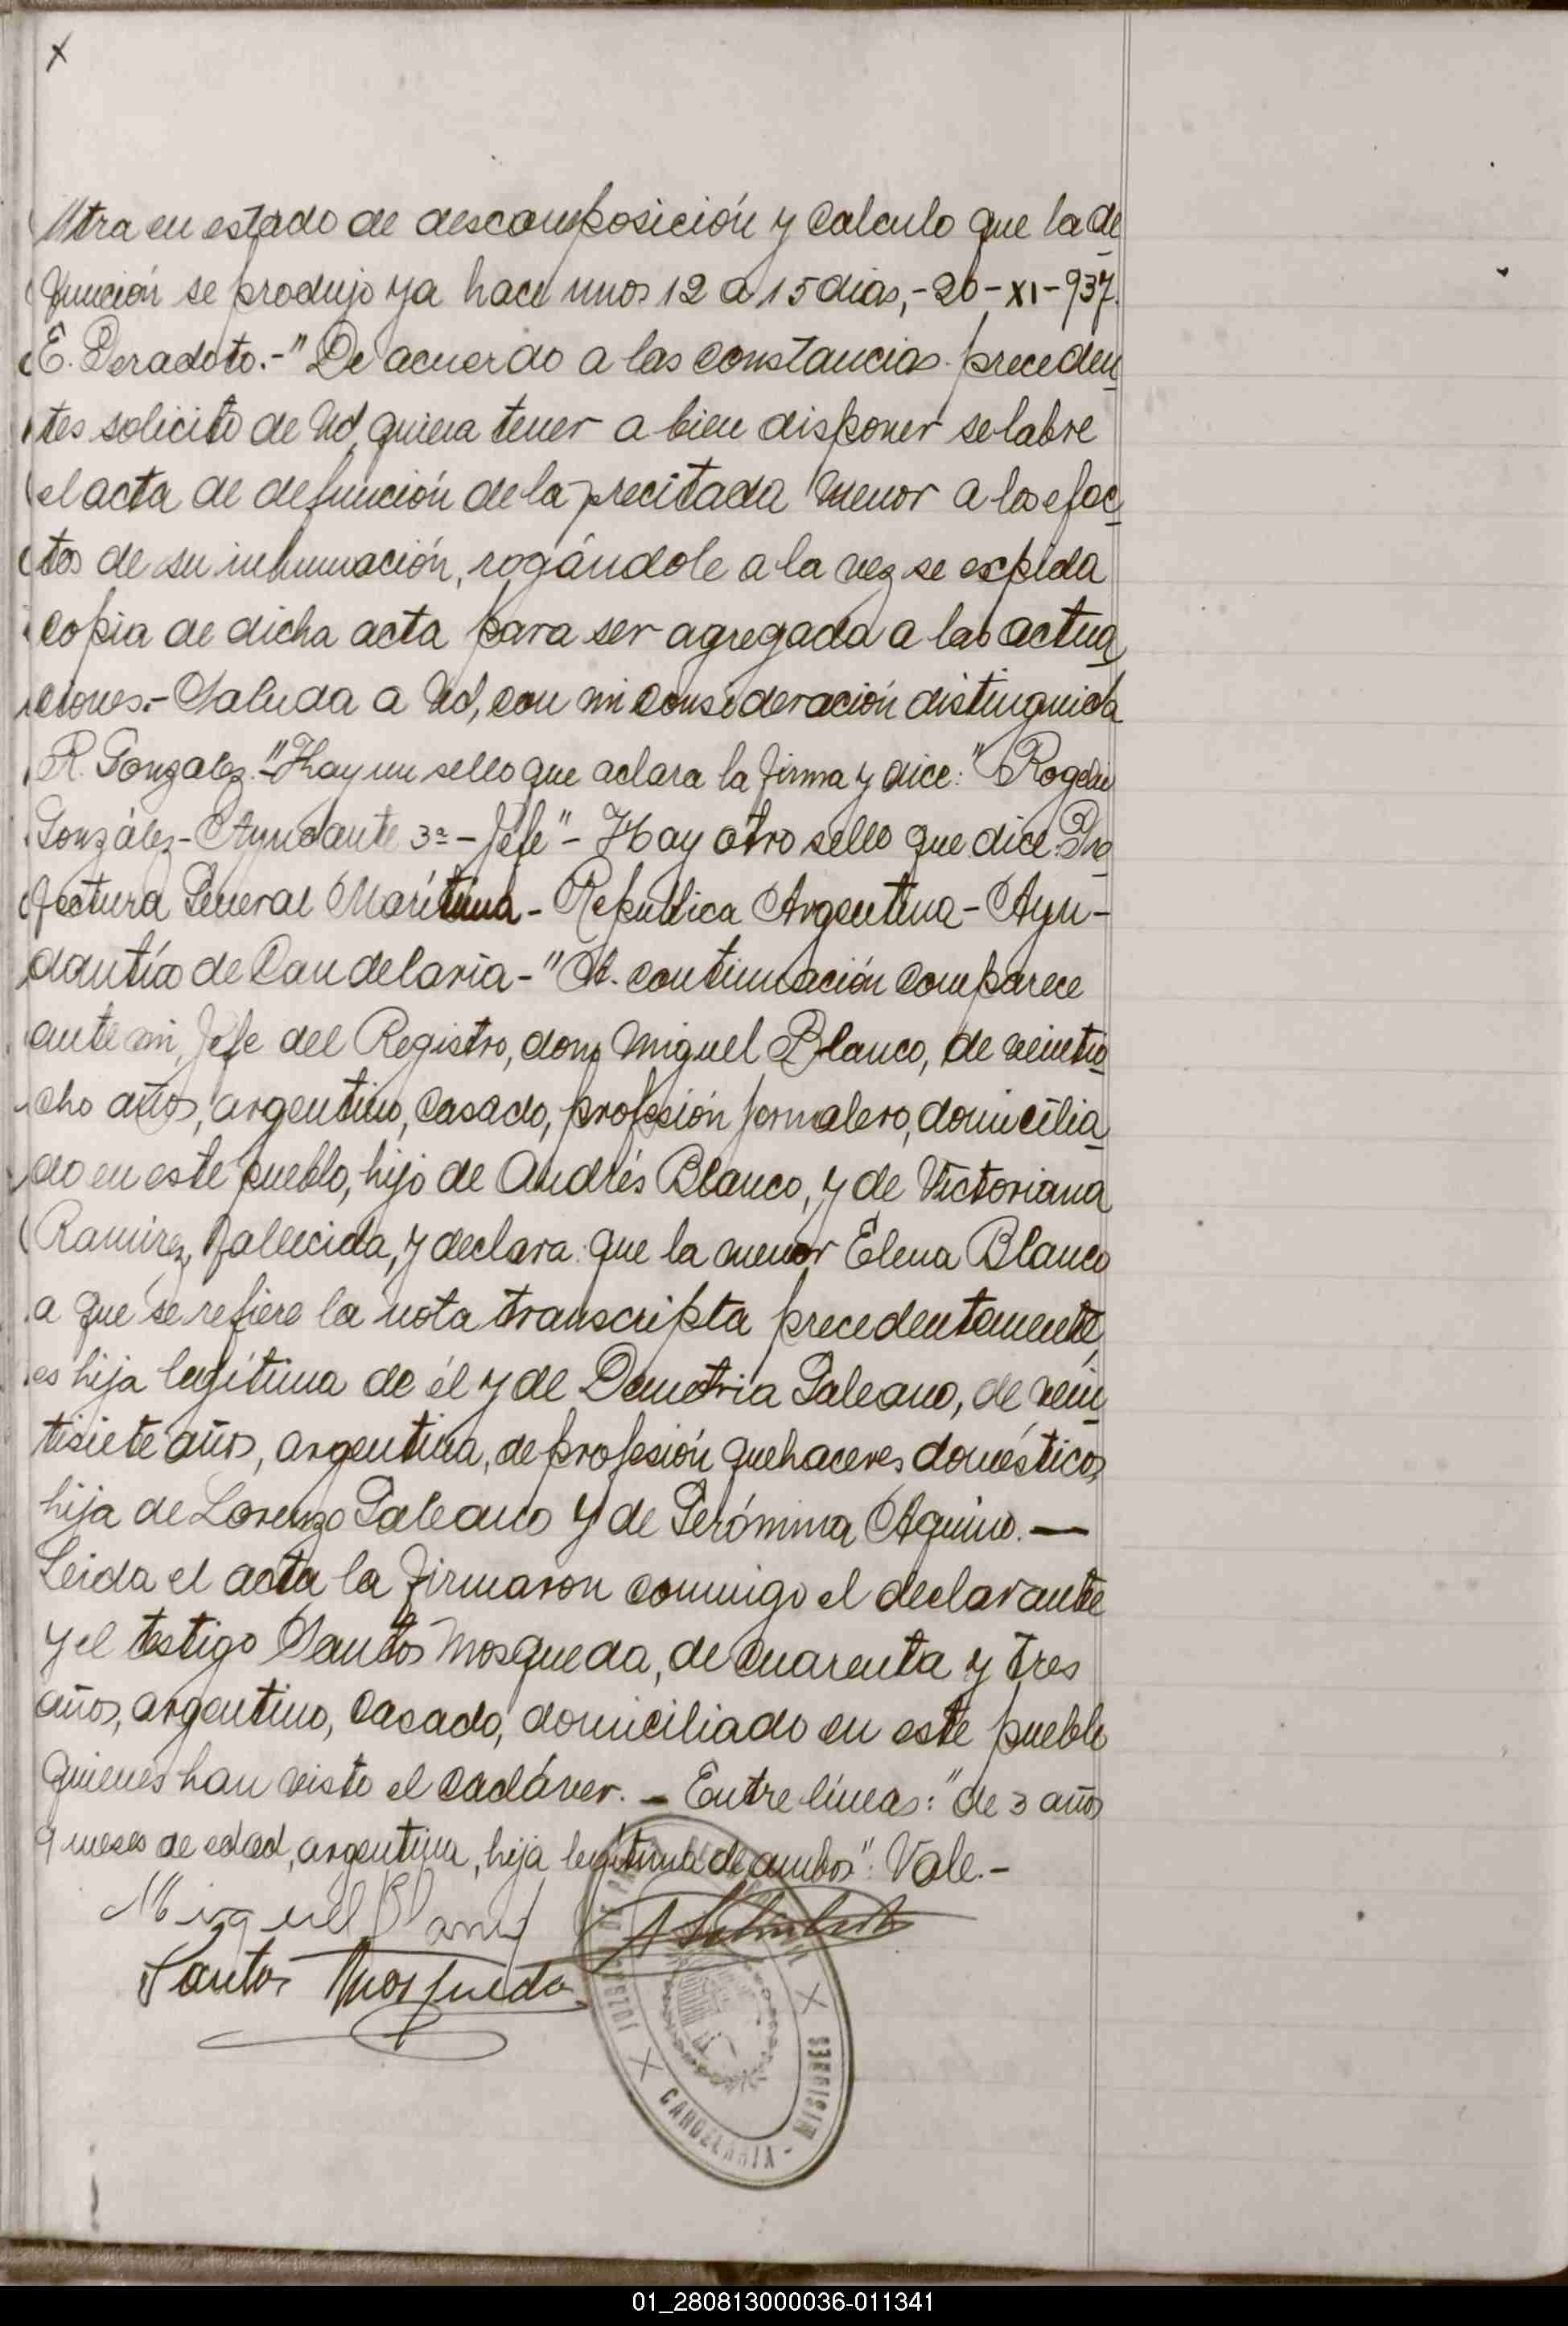 x
ntra en estado de descomposición y calculo que la de
función se produjo ya hace unos 12 a 15 dias,-20-XI-937.
E. Peradoto.-" De acuerdo a las constancias preceden
tes solicito de Ud, quiera tener a bien disponer se labre
el acta de defunción de la precitada menor a los efec
tos de su inhumación, rogándole a la vez se expida
copia de dicha acta para ser agregada a las actua
ciones.- Saluda a Ud, con mi consideración distinguida
R. Gonzalez." Hay un sello que aclara la firma y dice: "Rogelio
González - Ayudante 3ª - Jefe" - Hay otro sello que dice: Pre
fectura General Marítima - Republica Argentina - Ayu-
dantía de Candelaria -" A continuación comparece
ante mi, Jefe del Registro, don Miguel Blanco, de veintio
cho años, argentino, casado, profesión jornalero, domicilia
do en este pueblo, hijo de Andrés Blanco, y de Victoriana
Ramirez, fallecida, y declara: que la menor Elena Blanco
a que se refiere la nota transcripta precedentemente,
es hija legítima de él y de Demetria Galeano, de vein
tisiete años, argentina, de profesión quehaceres domésticos,
hija de Lorenzo Galeano y de Gerónima Aquino. —
Leida el acta la firmaron conmigo el declarante
y el testigo Santos Mosqueda, de cuarenta y tres
años, argentino, casado, domiciliado en este pueblo
quienes han visto el cadáver. - Entre líneas: "de 3 años
9 meses de edad, argentina, hija legítima de ambos": Vale.-
Miguel Blanco
Santos Mosqueda
JUZGADO DE PAZ
CANDELARIA - MISIONES
01_280813000036-011341